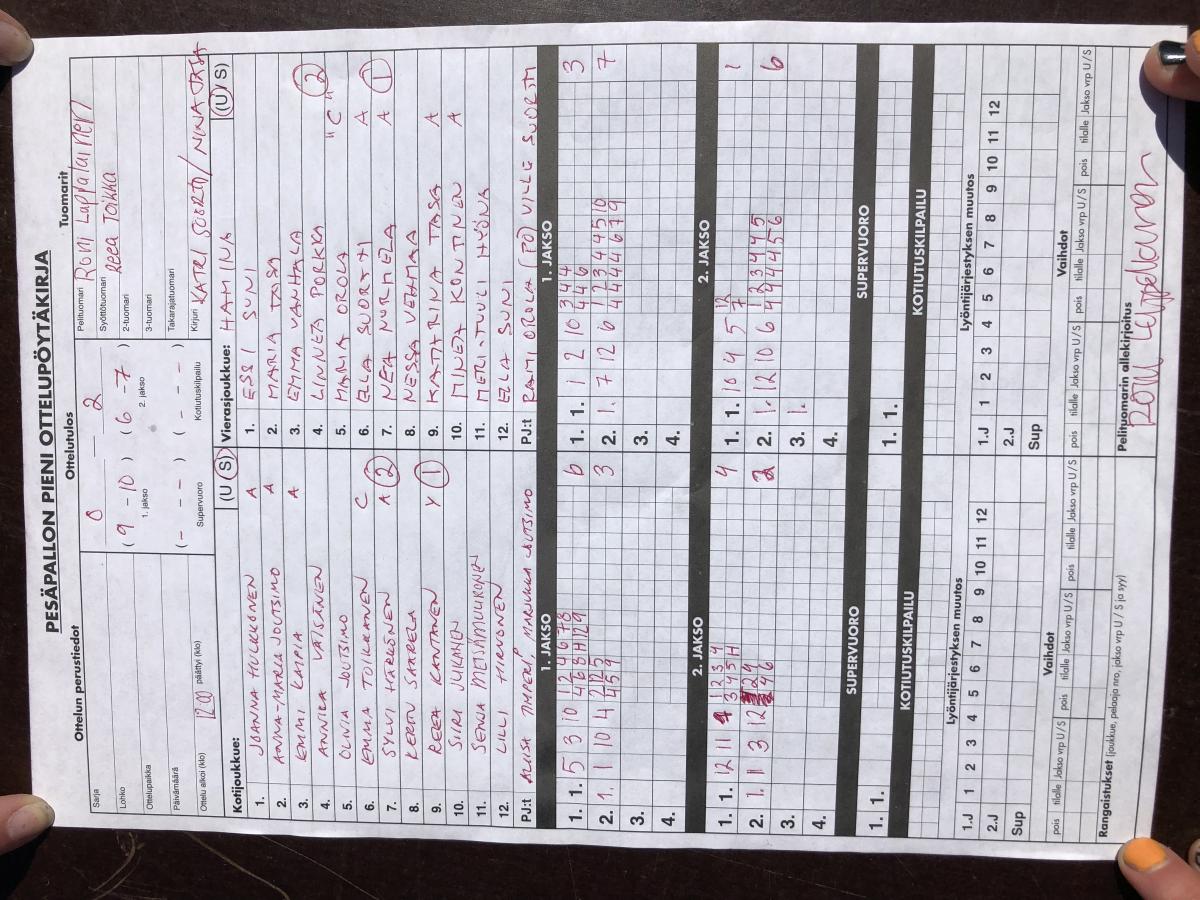 PESÄPALLON PIENI OTTELUPÖYTÄKIRJA
Ottelun perustiedot
Sarja
Lohko
Ottelupaikka
Päivämäärä
Ottelu alkoi (klo) 12.00 päättyi (klo)
Ottelutulos
0 — 2
( 9 - 10 ) ( 6 - 7 )
1. jakso 2. jakso
( - - - ) ( - - - )
Supervuoro Kotiutuskilpailu
Tuomarit
Pelituomari Roni Lappalainen
Syöttötuomari Reea Toikka
2-tuomari
3-tuomari
Takarajatuomari
Kirjuri KATRI SUORTTI / NINA TASA
Kotijoukkue: (U / S)
1. JOANNA HULKKONEN A
2. ANNA-MARIA JOUTSIMO A
3. EMMI KAMPIA A
4. ANNIKA VÄISÄNEN
5. OLIVIA JOUTSIMO
6. EMMA TOIKKANEN C
7. SYLVI HÄRKÖNEN A 2
8. KERTTU SAARELA
9. REEA KANTANEN Y 1
10. SIIRI JUKAINEN
11. SENJA METSÄMUURONEN
12. LILLI HIRVONEN
PJ:t ALIISA AMPERI, MARJUKKA JOUTSIMO
Vierasjoukkue: HAMINA (U / S)
1. ESSI SUNI
2. MARIA TASA
3. EMMA VANHALA 2
4. LINNEA PORKKA "C"
5. MARIA OROLA
6. ELLA SUORTTI A
7. NEA NORMELA A 1
8. NESSA VEHMAA
9. KATARIINA TASA A
10. MINEA KONTINEN A
11. MERI-TUULI HYÖNÄ
12. ELLA SUNI
PJ:t RAMI OROLA (PÖ) VILLE SUORTTI
1. JAKSO
1. 1. 5 3 10 6
2. 1. 1 10 4 3
3.
4.
2. JAKSO
1. 1. 12 11 4
2. 1. 11 3 12 2
3.
4.
SUPERVUORO
1. 1.
KOTIUTUSKILPAILU
1. JAKSO
1. 1. 1 2 10 3
2. 1. 7 12 6 7
3.
4.
2. JAKSO
1. 1. 10 4 5 1
2. 1. 12 10 6 6
3. 1.
4.
SUPERVUORO
1. 1.
KOTIUTUSKILPAILU
Lyöntijärjestyksen muutos
1.J 1 2 3 4 5 6 7 8 9 10 11 12
2.J
Sup
Vaihdot
pois tilalle Jakso vrp U / S pois tilalle Jakso vrp U / S pois tilalle Jakso vrp U / S
Lyöntijärjestyksen muutos
1.J 1 2 3 4 5 6 7 8 9 10 11 12
2.J
Sup
Vaihdot
pois tilalle Jakso vrp U / S pois tilalle Jakso vrp U / S pois tilalle Jakso vrp U / S
Rangaistukset (joukkue, pelaaja nro, jakso vrp U / S ja syy)
Pelituomarin allekirjoitus